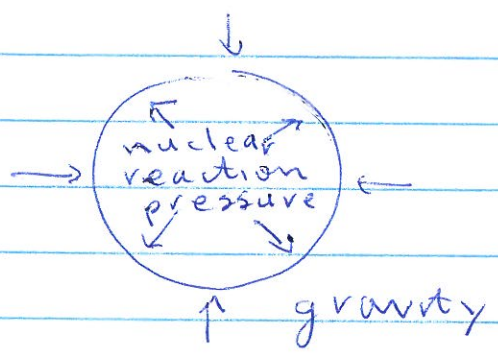 nuclear
reaction
pressure
gravity